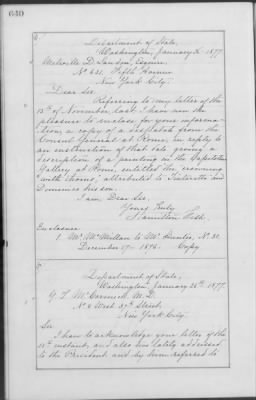 640
Department of State,
Washington, January 1877
Melville D. Landon, Esquire
No 431. Fifth Avenue
New York City.
Dear Sir.
Referring to my letter of the
15th of November last, I have now the
pleasure to enclose for your informa-
tion, a copy of a despatch from the
Consul General at Rome, in reply to
an instruction of that date giving a
description of a painting in the Capitoline
Gallery at Rome, entitled the crowning
with thorns, attributed to Tintoretto and
Domenico his son.
I am Dear Sir.
Yours truly
Hamilton Fish.
Enclosure
1. Mr McMillan to Mr Hunter, No 30.
December 27th 1876. Copy
Department of State,
Washington, January 26th 1877.
G. T. M.D.
No 2 West 30th Street,
New York City
Sir
I have to acknowledge your letter of the
instant, and also one lately addressed
to the President and by him referred to